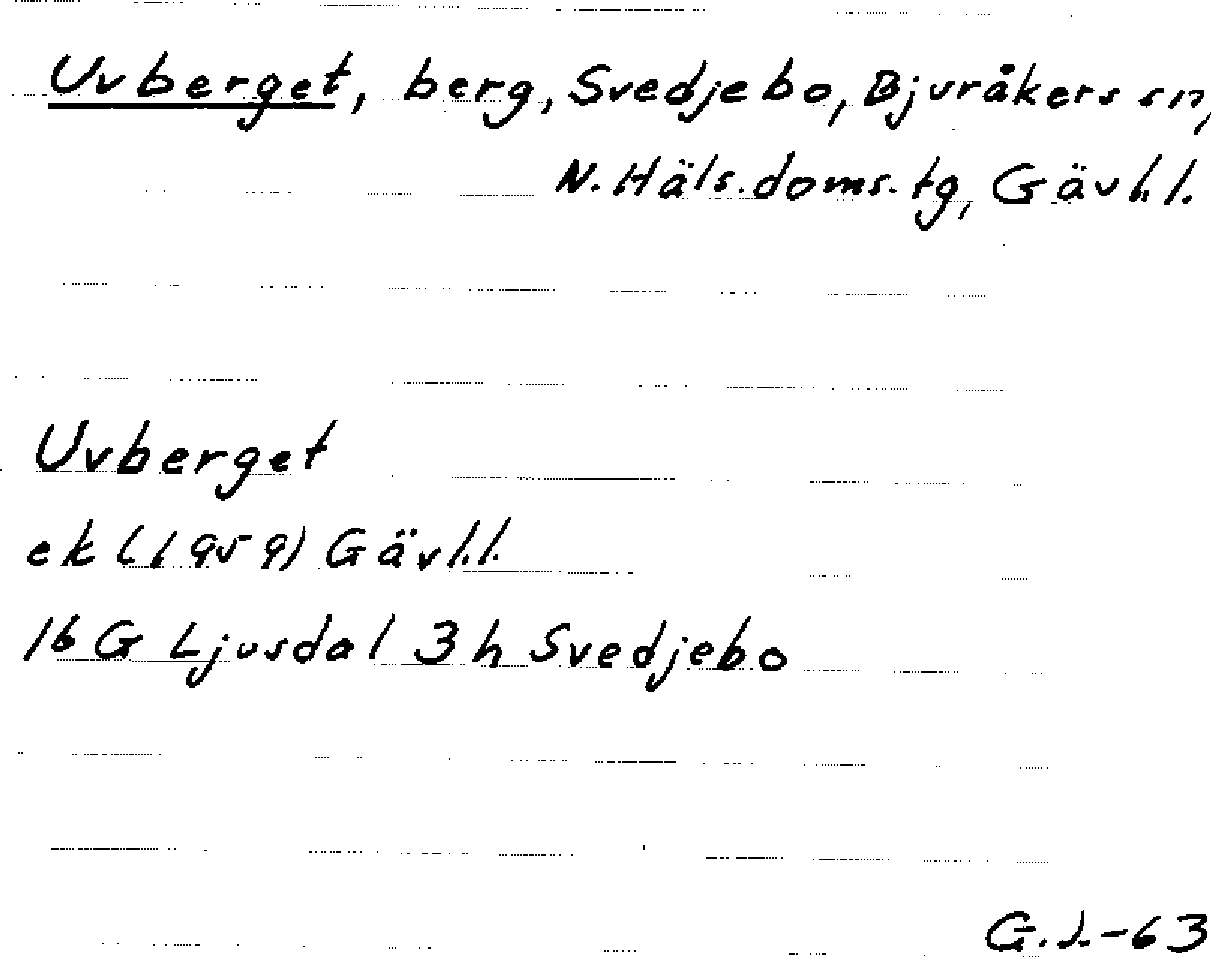 Uvberget, berg, Svedjebo, Bjuråkers sn,
N. Häls. doms. tg, Gävl. l.
Uvberget
ek (1959) Gävl. l.
16 G Ljusdal 3 h Svedjebo
-63